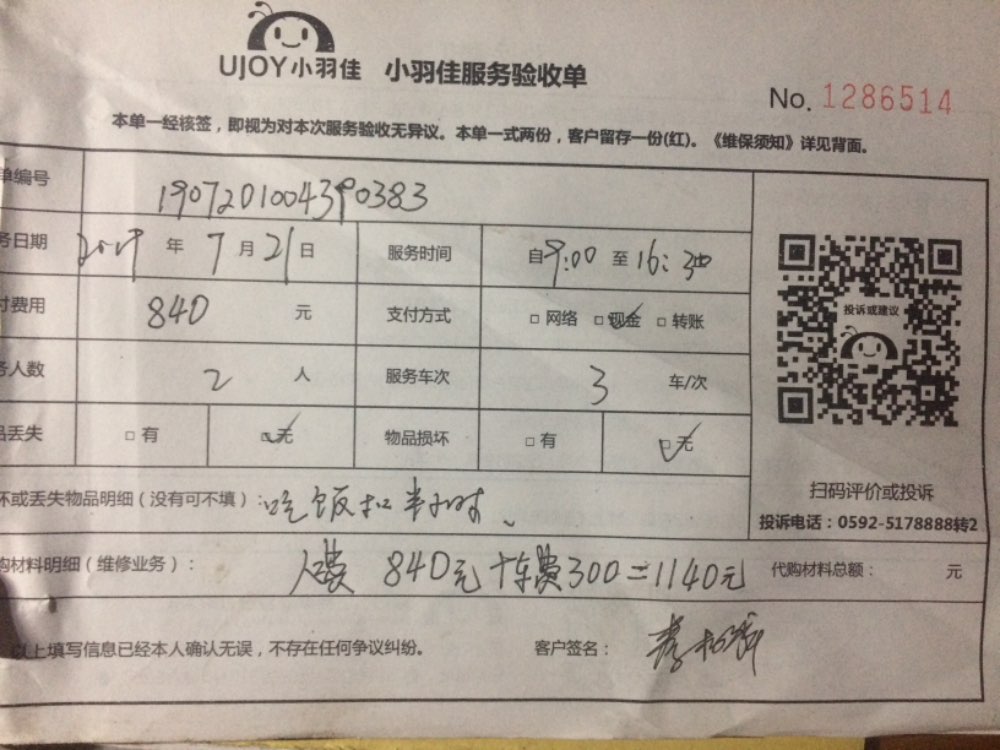 UJOY小羽佳 小羽佳服务验收单
No. 1286514
本单一经核签，即视为对本次服务验收无异议。本单一式两份，客户留存一份(红)。《维保须知》详见背面。
单编号 19072010043990383
务日期 2019 年 7 月 21 日 服务时间 自 9:00 至 16:30
付费用 840 元 支付方式 □ 网络 □ 现金 □ 转账
务人数 2 人 服务车次 3 车/次
品丢失 □ 有 □ 无 物品损坏 □ 有 □ 无
投诉或建议
坏或丢失物品明细（没有可不填）：吃饭扣半小时、
扫码评价或投诉
投诉电话：0592-5178888转2
购材料明细（维修业务）： 人费 840元+车费300=1140元 代购材料总额： 元
以上填写信息已经本人确认无误，不存在任何争议纠纷。 客户签名：